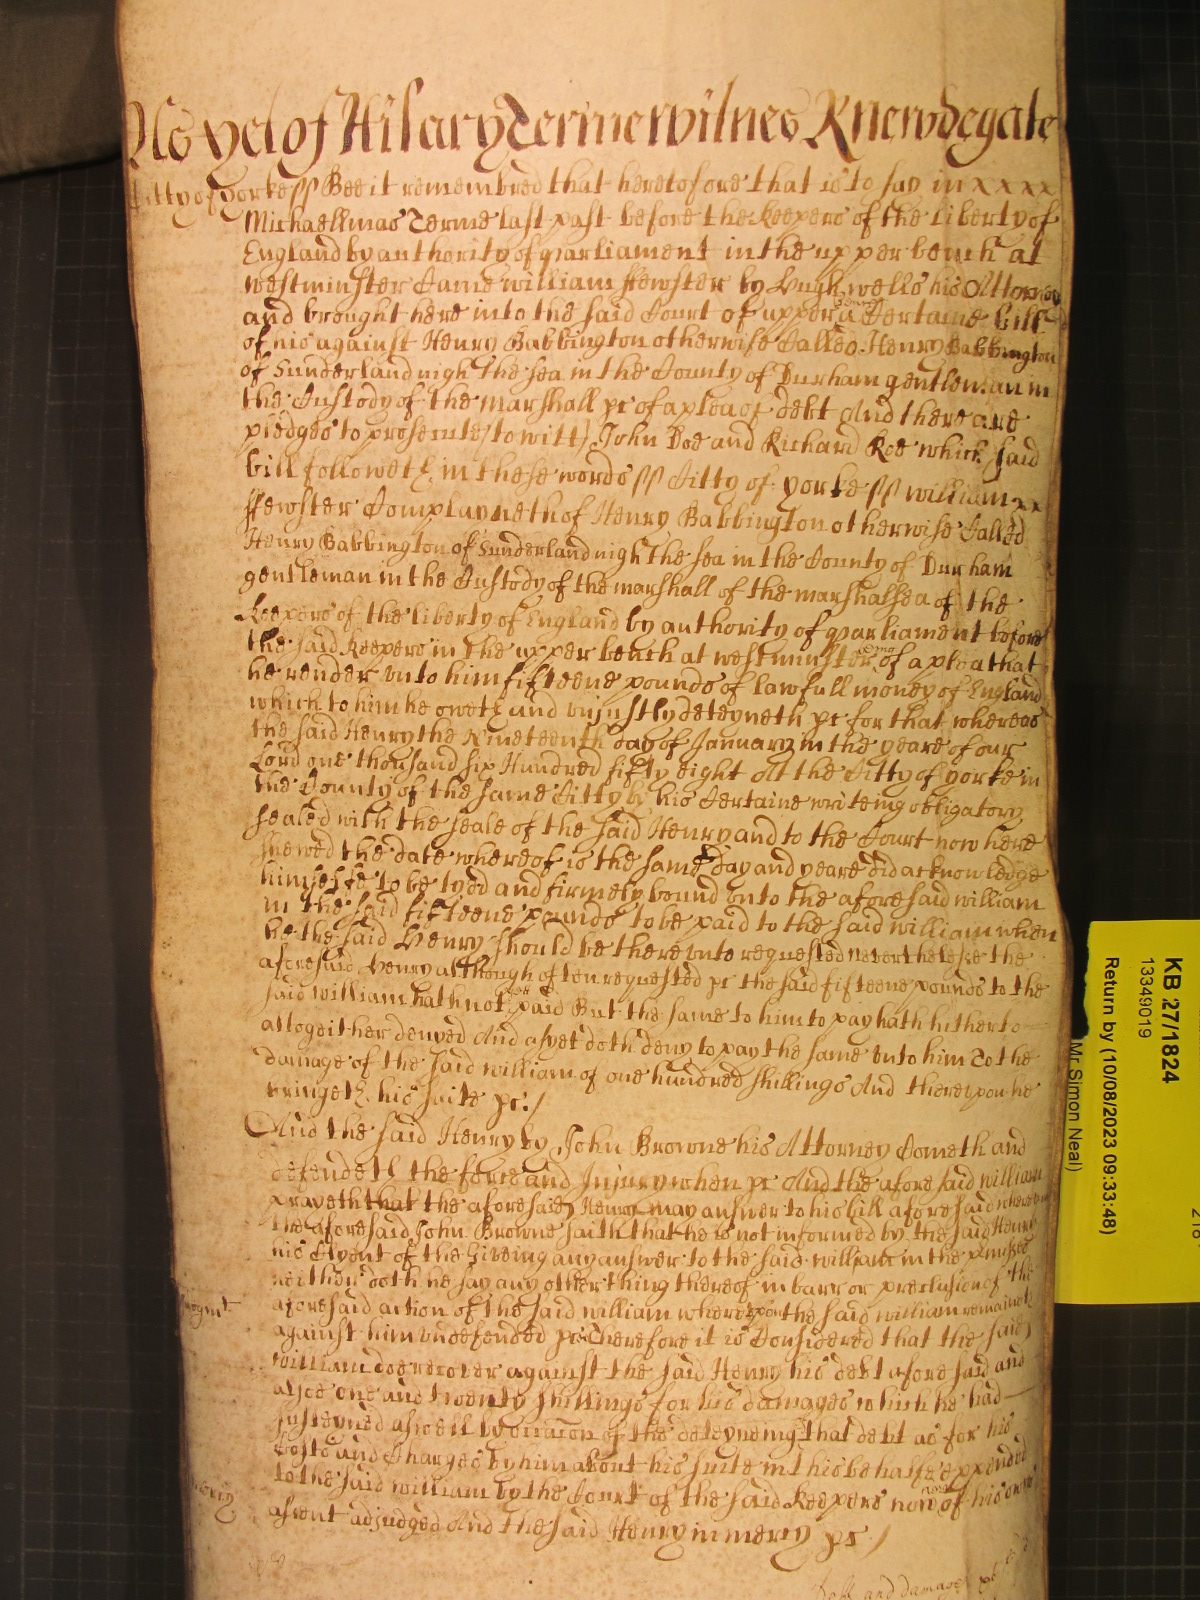 As yet of Hilary Terme witnes R Newdegate
Citty of yorke ss Bee it remembred that heretofore that is to say in x x x x
Michaellmas Terme last past before the keepers of the liberty of
England by authority of parliament in the upper bench at
westminster Came william ffewster by Hugh wells his Attorney
and brought here into the said Court of upper bench a Certaine bill
of his against Henry Babbington otherwise Called Henry Babbington
of Sunderland nigh the sea in the County of Durham gentleman in
the Custody of the marshall pc of a plea of debt And there are
pledges to prosecute (to witt) John Doe and Richard Roe which said
bill followeth in these words ss Citty of yorke ss william x x
ffewster Complayneth of Henry Babbington otherwise Called
Henry Babbington of Sunderland nigh the sea in the County of Durham
gentleman in the Custody of the marshall of the marshalsea of the
Keepers of the liberty of England by authority of parliament before
the said Keepers in the upper bench at westminster being of a plea that
he render unto him fifteene pounds of lawfull money of England
which to him he oweth and unjustly deteyneth pc for that whereas
the said Henry the Nineteenth day of January in the yeare of our
Lord one thousand six Hundred fifty eight At the Citty of yorke in
the County of the same Citty by his Certaine writeing obligatory
sealed with the seale of the said Henry and to the Court now here
shewed the date whereof is the same day and yeare did acknowledge
himselfe to be tyed and firmely bound unto the aforesaid william
in the said fifteene pounds to be paid to the said william when
he the said Henry should be thereunto requested nevertheless the
aforesaid Henry although often requested pc the said fifteene pounds to the
said william hath not yet paid But the same to him to pay hath hitherto
altogeither denyed And as yet doth deny to pay the same unto him To the
damage of the said william of one hundred shillings And thereupon he
bringeth his suite pc./
And the said Henry by John Browne his Attorney Cometh and
defendeth the force and Injury when pc And the aforesaid william
prayeth that the aforesaid Henry may answer to his bill aforesaid whereupon
the aforesaid John Browne saith that he is not informed by the said Henry
his Clyent of the Giveing any answer to the said william in the premises
neither doth he say any other thing thereof in barr or preclusion of the
Judgmt
aforesaid action of the said william whereupon the said william remaineth
against him undefended pc Therefore it is Considered that the said
william doe recover against the said Henry his debt aforesaid and
alsoe one and twenty shillings for his damages which he had
susteyned aswell by occasion of the deteyneing that debt as for his
Costs and Charges by him about his suite in this behalfe expended
to the said william by the Court of the said Keepers now here of his owne
mercy
assent adjudged And the said Henry in mercy pc /
debt and damages
KB 27/1824
13349019
Return by (10/08/2023 09:33:48)
Mr Simon Neal)